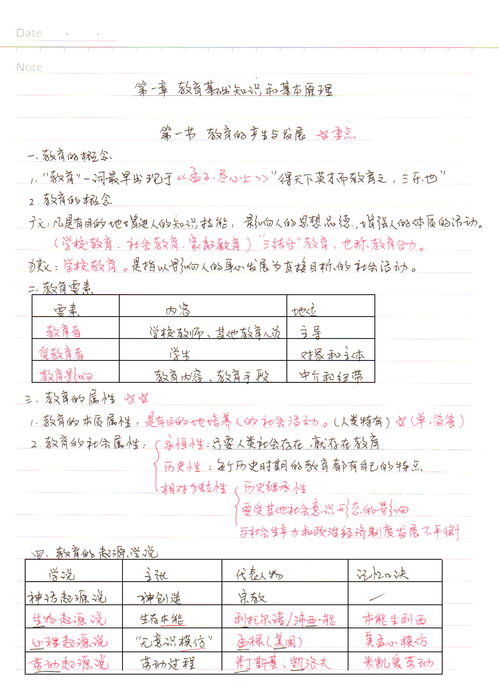 Date
Note
第一章 教育基础知识和基本原理
第一节 教育的产生与发展 ☆重点
一.教育的概念
1."教育"一词最早出现于《孟子·尽心上》"得天下英才而教育之,三乐也"
2.教育的概念
广义:凡是有目的地增进人的知识技能,影响人的思想品德,增强人的体质的活动。
(学校教育.社会教育.家庭教育)"三结合"教育,也称教育合力。
狭义:学校教育。是指以影响人的身心发展为直接目标的社会活动。
二.教育要素
要素 内容 地位
教育者 学校教师、其他教育人员 主导
受教育者 学生 对象和主体
教育影响 教育内容、教育手段 中介和纽带
三.教育的属性 ☆☆
1.教育的本质属性:是有目的地培养人的社会活动。(人类特有)☆(单.简答)
2.教育的社会属性: 永恒性:只要人类社会存在,就存在教育
历史性:每个历史时期的教育都有自己的特点
相对独立性 历史继承性
要受其他社会意识形态的影响
与社会生产力和政治经济制度发展不平衡
四.教育的起源学说
学说 主张 代表人物 记忆口诀
神话起源说 神创造 宗教 /
生物起源说 生存本能 利托尔诺/沛西·能 本能生利西
心理起源说 "无意识模仿" 孟禄(美国) 美孟心模仿
劳动起源说 劳动过程 米丁斯基、凯洛夫 米凯爱劳动